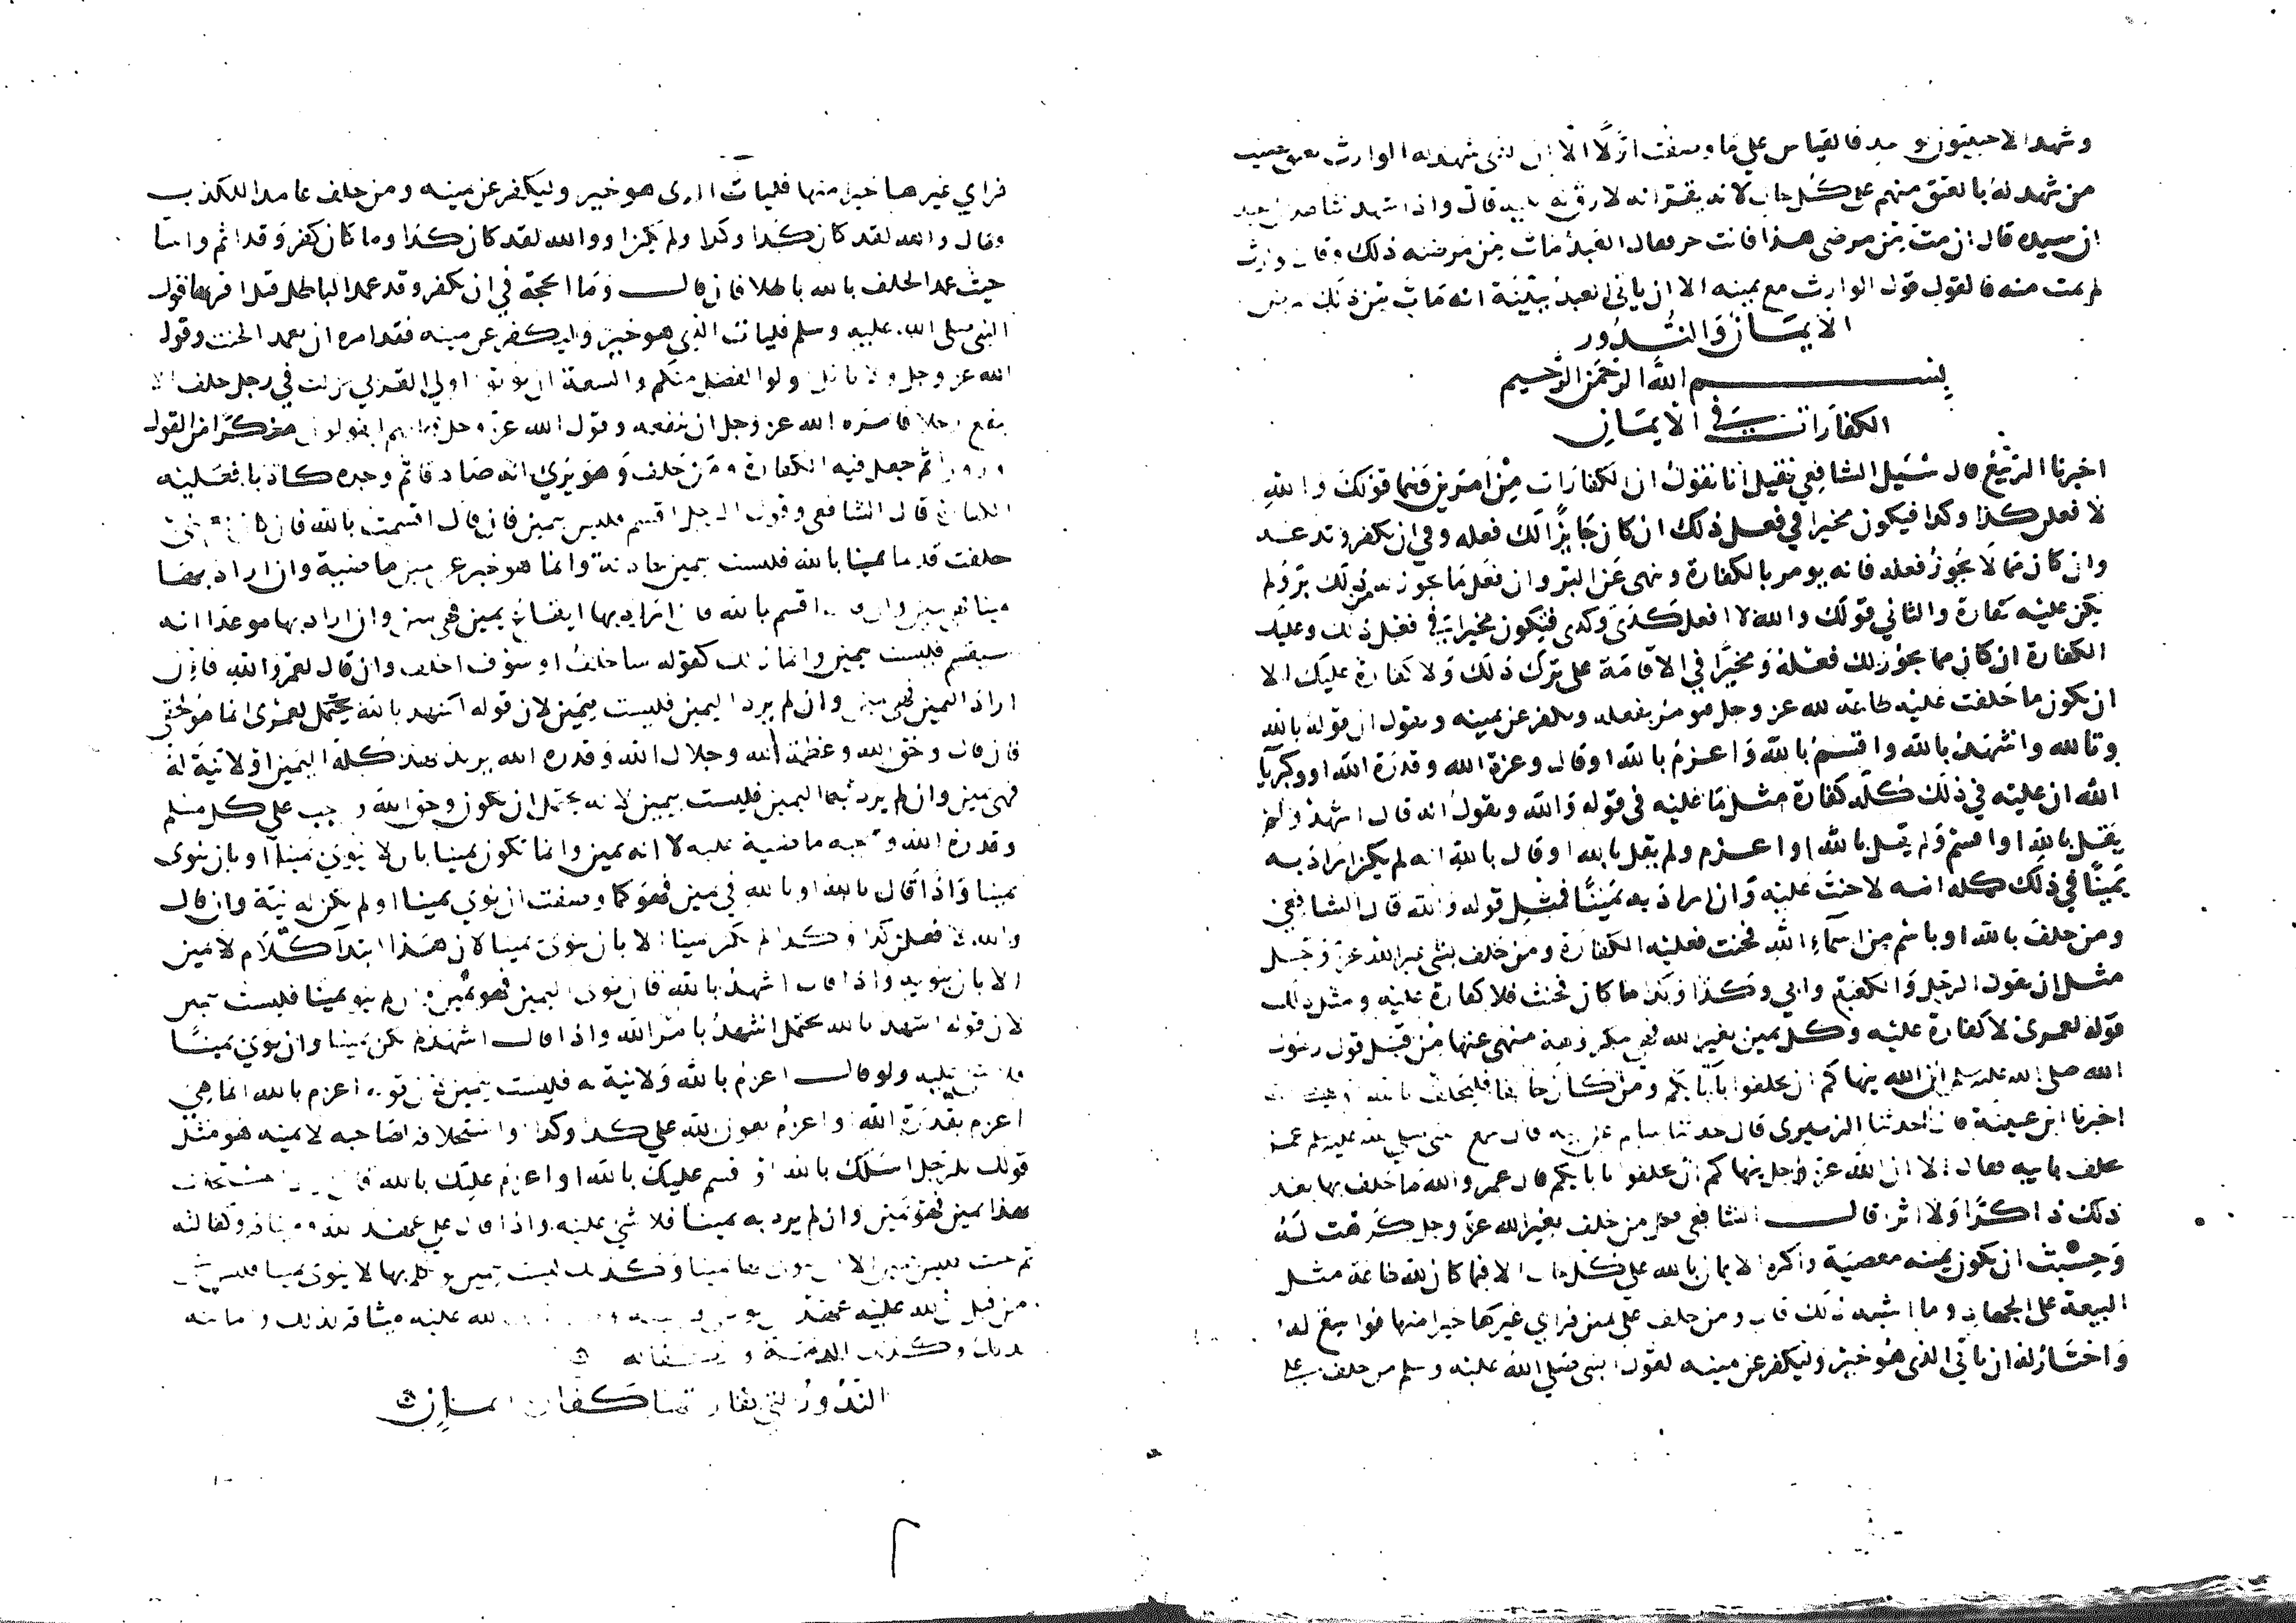 وشهد الاجنبيون لعبد فالقياس على ما وصفت اولا الا ان الذي شهد له الوارث يعتق نصيب
من شهد له بالعتق منهم على كل حال لانه يقر انه لا رق له عليه قال واذا شهد شاهدان لعبد
ان سيده قال ان مت من مرضي هذا فانت حر فقال العبد مات من مرضه ذلك وقال وارث
لم يمت منه فالقول قول الوارث مع يمينه الا ان ياتي العبد ببينة انه مات من ذلك
الايمان والنذور
بسم الله الرحمن الرحيم
الكفارات في الايمان
اخبرنا الربيع قال سئيل الشافعي فقيل انا نقول ان الكفارات من امرين فهما قولك والله
لا فعلن كذا وكدا فيكون مخيرا في فعل ذلك ان كان جايزا لك فعله وفي ان يكفر وتدعه
وان كان مما لا يجوز فعله فانه يومر بالكفارة وينهى عن البر وان فعل ما يجوز له من ذلك بر ولم
يكن عليه كفارة والثاني قولك والله لا افعل كذى وكدى فيكون مخيرا في فعل ذلك وعليك
الكفارة ان كان مما يجوز لك فعله ومخيرا في الاقامة على ترك ذلك ولا كفارة عليك الا
ان يكون ما حلفت عليه طاعة لله عز وجل فيومر بفعله ويكفر عن يمينه ونقول ان قوله بالله
وتالله واشهد بالله واقسم بالله واعزم بالله او قال وعزة الله وقدرة الله او وكبريا
الله ان عليه في ذلك كله كفارة مثل ما عليه في قوله والله ونقول انه قال اشهد ولم
يقل بالله او اقسم ولم يقل بالله او اعزم ولم يقل بالله او قال بالله انه لم يكن اراد به
يمينا في ذلك كله انه لا حنث عليه وان اراد به يمينا فمثل قوله والله قال الشافعي
ومن حلف بالله او باسم من اسماء الله فحنث فعليه الكفارة ومن حلف بشي غير الله عز وجل
مثل ان يقول الرجل والكعبة وابي وكذا وكذا ما كان فحنث فلا كفارة عليه ومثل ذلك
قوله لعمرى لا كفارة عليه وكل يمين بغير الله فهي مكروهة منهى عنها من قبل قول رسول
الله صلى الله عليه وسلم ان الله ينهاكم ان تحلفوا بابايكم ومن كان حالفا فليحلف بالله
اخبرنا ابن عيينة قال حدثنا الزهري قال حدثنا سالم عن ابيه قال سمع النبي صلى الله عليه وسلم عمر
يحلف بابيه فقال الا ان الله عز وجل ينهاكم ان تحلفوا بابايكم قال عمر والله ما حلفت بها بعد
ذلك ذاكرا ولا اثرا قال الشافعي فكل من حلف بغير الله عز وجل كرهت له
وخشيت ان يكون يمينه معصية واكره الايمان بالله على كل حال الا فيما كان لله طاعة مثل
البيعة على الجهاد وما اشبه ذلك قال ومن حلف على يمين فراى غيرها خيرا منها فواسع له
واختار له ان ياتي الذي هو خير وليكفر عن يمينه لقول النبي صلى الله عليه وسلم من حلف على
فراي غيرها خيرا منها فليات الذى هو خير وليكفر عن يمينه ومن حلف عامدا للكذب
وقال والله لقد كان كذا وكدا ولم يكن او والله لقد كان كذا وما كان كفر وقد اثم واسا
حيث عمد الحلف بالله باطلا فان قال وما الحجة في ان يكفر وقد عمد الباطل قيل اقربها قول
النبي صلى الله عليه وسلم فليات الذي هو خير وليكفر عن يمينه فقد امره ان يعمد الحنث وقول
الله عز وجل ولا ياتل اولوا الفضل منكم والسعة ان يوتوا اولي القربى نزلت في رجل حلف الا
ينفع رجلا فامره الله عز وجل ان ينفعه وقول الله عز وجل وانهم ليقولون منكرا من القول
وزورا ثم جعل فيه الكفارة ومن حلف وهو يرى انه صادق ثم وجده كاذبا فعليه
الكفارة قال الشافعي وقول الرجل اقسم فليس بيمين فان قال اقسمت بالله فان كان
حلفت قديما يمينا بالله فليست بيمين حادثة وانما هو خبر عن يمين ماضية وان اراد بها
يمينا فهي يمين وان قال اقسم بالله فان اراد بها ايقاع يمين فهي يمين وان اراد بها موعدا انه
سيقسم فليست بيمين وانما ذلك كقوله ساحلف او سوف احلف وان قال لعمر والله فان
اراد اليمين فهي يمين وان لم يرد اليمين فليست بيمين لان قوله اشهد بالله يحتمل لعمرى انما هو لحقى
فان قال وحق الله وعظمة الله وجلال الله وقدرة الله يريد بهذا كله اليمين او لا نية له
فهي يمين وان لم يرد بها اليمين فليست بيمين لانه يحتمل ان يكون وحق الله واجب على كل مسلم
وقدرة الله ماضية عليه لا انه يمين وانما تكون يمينا بان لا ينوي شيئا او بان ينوى
يمينا واذا قال بالله او تالله في يمين فهو كما وصفت ان نوى يمينا او لم يكن له نية وان قال
والله لافعلن كذا وكذا لم يكن يمينا الا بان ينوى يمينا لان هذا ابتدا كلام لا يمين
الا بان ينويه واذا قال اشهد بالله فان نوى اليمين فهو يمين وان لم ينو يمينا فليست بيمين
لان قوله اشهد بالله يحتمل اشهد بامر الله واذا قال اشهد لم يكن يمينا وان نوى يمينا
فلا شي عليه ولو قال اعزم بالله ولا نية له فليست بيمين لان قوله اعزم بالله انما هي
اعزم بقدرة الله او اعزم بعون الله على كذا وكذا واستحلافه لصاحبه لا يمينه هو مثل
قولك للرجل اسلك بالله او اقسم عليك بالله او اعزم عليك بالله فان
بهذا يمين فهو يمين وان لم يرد به يمينا فلا شي عليه واذا قال علي عهد الله وميثاقه وكفالته
ثم حنث فليس بيمين الا ان ينوى بها يمينا وكذلك ليست بيمين لو تكلم بها لا ينوى يمينا فليس
من قبل ان لله عليه عهدا لله عليه ميثاقه بذلك وامانته
بذلك وكذلك الذمة والكفالة
النذور التي كفارتها كفارة ايمان